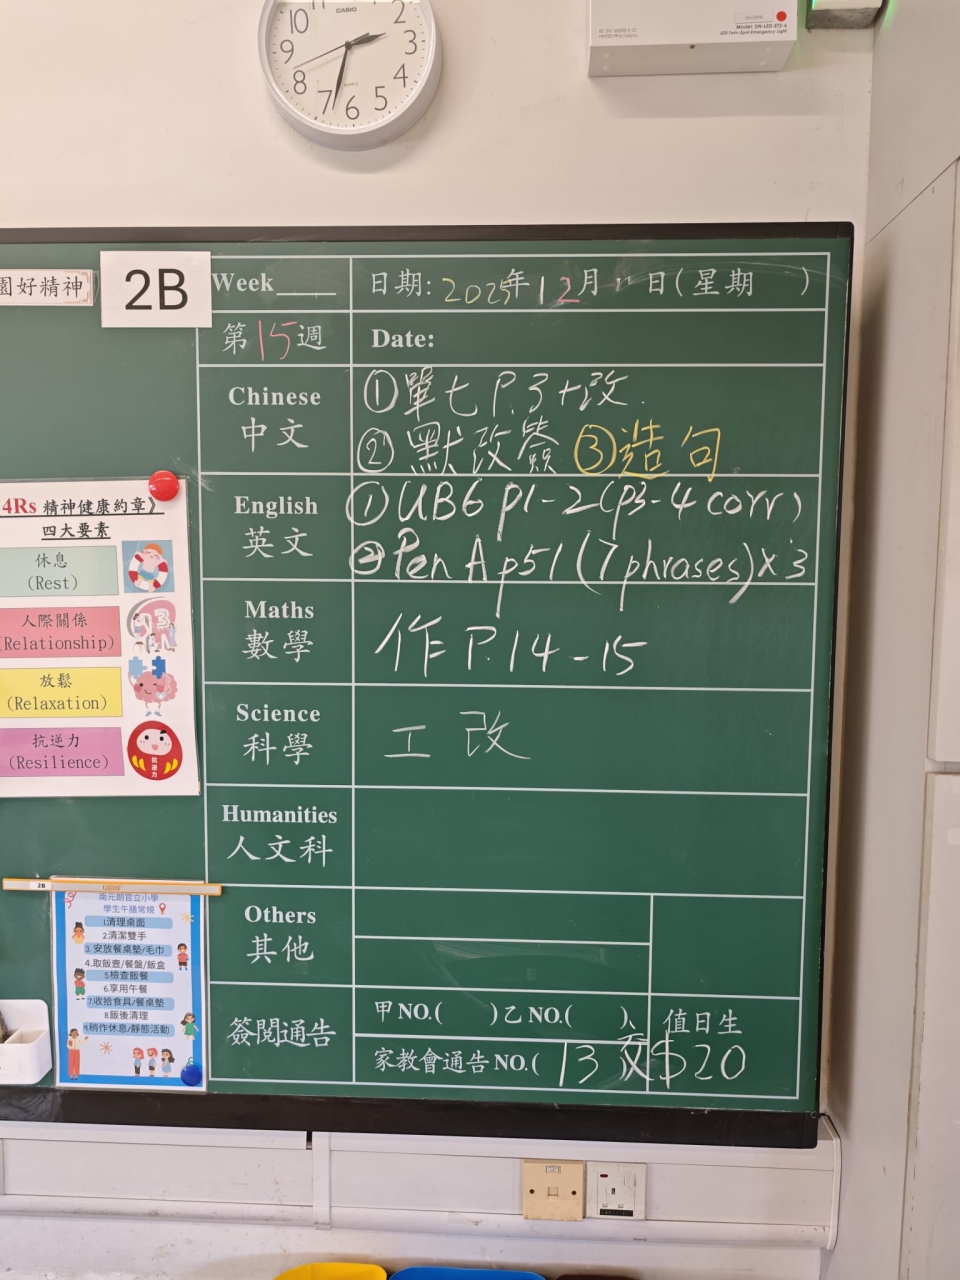 10
9
8
7
6
5
4
3
2
CASIO
Model: SW-LED-2T2-6
LED Twin-Spot Emergency Light
園好精神
2B
Week
日期: 2025年12月11日(星期 )
第15週
Date:
Chinese
中文
①單七 P.3+改
②默改簽 ③造句
English
英文
①UB6 p1-2(p3-4 corr)
②Pen A p51 (7 phrases)x3
Maths
數學
作 P.14-15
Science
科學
工改
Humanities
人文科
Others
其他
簽閱通告
甲NO.( )乙NO.( )、
值日生
家教會通告NO.( 13 交$20
4Rs 精神健康約章》
四大要素
休息
(Rest)
人際關係
(Relationship)
放鬆
(Relaxation)
抗逆力
(Resilience)
抗逆力
2B
南元朗官立小學
學生午膳常規
1.清理桌面
2.清潔雙手
3.安放餐桌墊/毛巾
4.取飯壺/餐盤/飯盒
5.檢查飯餐
6.享用午餐
7.收拾食具/餐桌墊
8.飯後清理
9.稍作休息/靜態活動